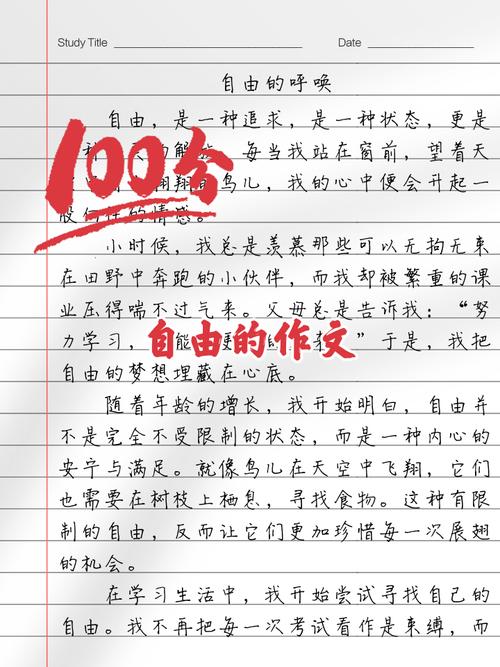 Study Title
Date
自由的呼唤
自由，是一种追求，是一种状态，更是
每当我站在窗前，望着天
鸟儿，我的心中便会升起一
的情感。
100分
小时候，我总是羡慕那些可以无拘无束
在田野中奔跑的小伙伴，而我却被繁重的课
业压得喘不过气来。父母总是告诉我：“努
力学习，
”于是，我把
自由的作文
自由的梦想埋藏在心底。
随着年龄的增长，我开始明白，自由并
不是完全不受限制的状态，而是一种内心的
安宁与满足。就像鸟儿在天空中飞翔，它们
也需要在树枝上栖息，寻找食物。这种有限
制的自由，反而让它们更加珍惜每一次展翅
的机会。
在学习生活中，我开始尝试寻找自己的
自由。我不再把每一次考试看作是束缚，而